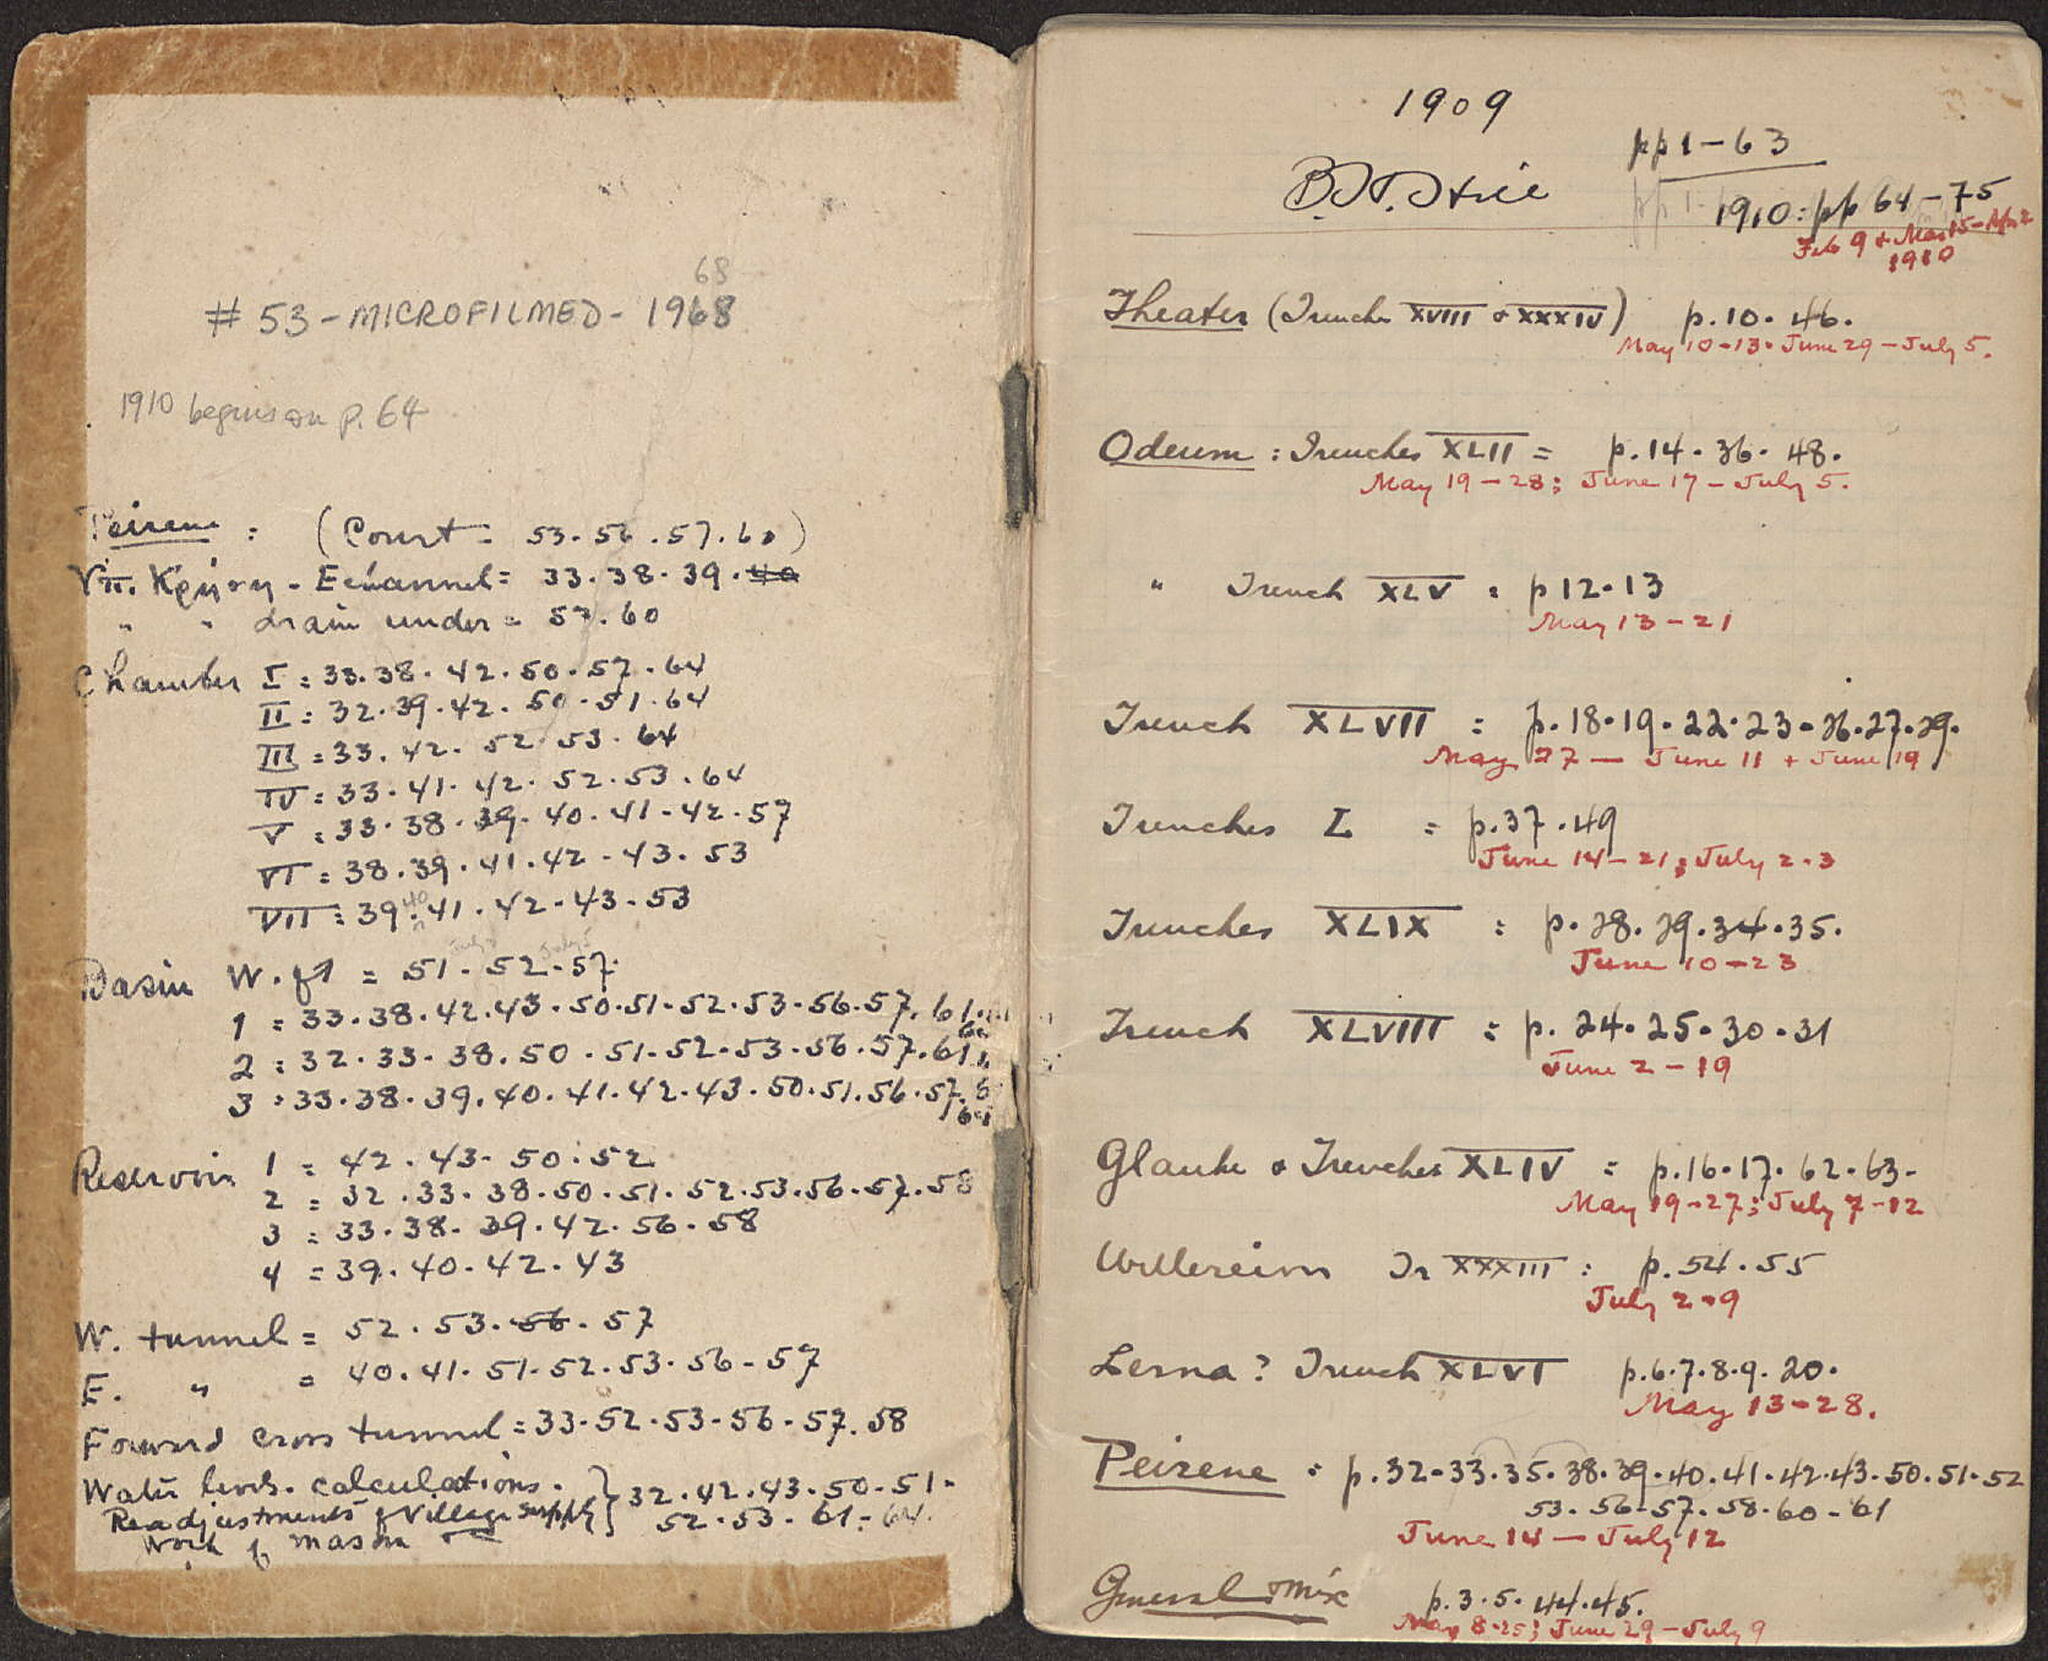 68
# 53 - MICROFILMED - 1968
1910 begins on p. 64
Peirene : (Court = 53. 56. 57. 60)
- E channel = 33. 38. 39. 40
" " drain under = 57. 60
Chamber I = 33. 38. 42. 50. 57. 64
II = 32. 39. 42. 50. 51. 64
III = 33. 42. 52. 53. 64
IV = 33. 41. 42. 52. 53. 64
V = 33. 38. 39. 40. 41. 42. 57
VI = 38. 39. 41. 42. 43. 53
VII = 39. 40 41. 42. 43. 53
Basin W. of 1 = 51. 52. 57.
1 = 33. 38. 42. 43. 50. 51. 52. 53. 56. 57. 61.
2 = 32. 33. 38. 50. 51. 52. 53. 56. 57. 61
3 = 33. 38. 39. 40. 41. 42. 43. 50. 51. 56. 57.
Reservoir 1 = 42. 43. 50. 52
2 = 32. 33. 38. 50. 51. 52. 53. 56. 57. 58
3 = 33. 38. 39. 42. 56. 58
4 = 39. 40. 42. 43
W. tunnel = 52. 53. 56. 57
E. " = 40. 41. 51. 52. 53. 56. 57
Forward cross tunnel = 33. 52. 53. 56. 57. 58
Water levels. calculations. } 32. 42. 43. 50. 51.
Readjustments of Village supply } 52. 53. 61. 64.
Work of mason
1909
pp 1 - 63
B. H. Hill
1910 : pp 64 - 75
Feb 9 + Mar 15 - Apr 2
1910
Theater (Trenches XVIII & XXXIV) p. 10. 46.
May 10-13. June 29 - July 5.
Odeum : Trenches XLII = p. 14. 36. 48.
May 19 - 28; June 17 - July 5.
" Trench XLV = p 12. 13
May 13 - 21
Trench XLVII = p. 18. 19. 22. 23. 26. 27. 29.
May 27 - June 11 + June 19
Trenches L = p. 37. 49
June 14 - 21; July 2-3
Trenches XLIX = p. 28. 29. 34. 35.
June 10 - 23
Trench XLVIII = p. 24. 25. 30. 31
June 2 - 19
Glauke & Trenches XLIV = p. 16. 17. 62. 63.
May 19-27; July 7-12
Tr XXXIII : p. 54. 55
July 2-9
Lerna? Trench XLVI p. 6. 7. 8. 9. 20.
May 13 - 28.
Peirene : p. 32. 33. 35. 38. 39. 40. 41. 42. 43. 50. 51. 52
53. 56. 57. 58. 60. 61
June 14 - July 12
General & Mix p. 3. 5. 44. 45.
May 8-25; June 29 - July 9